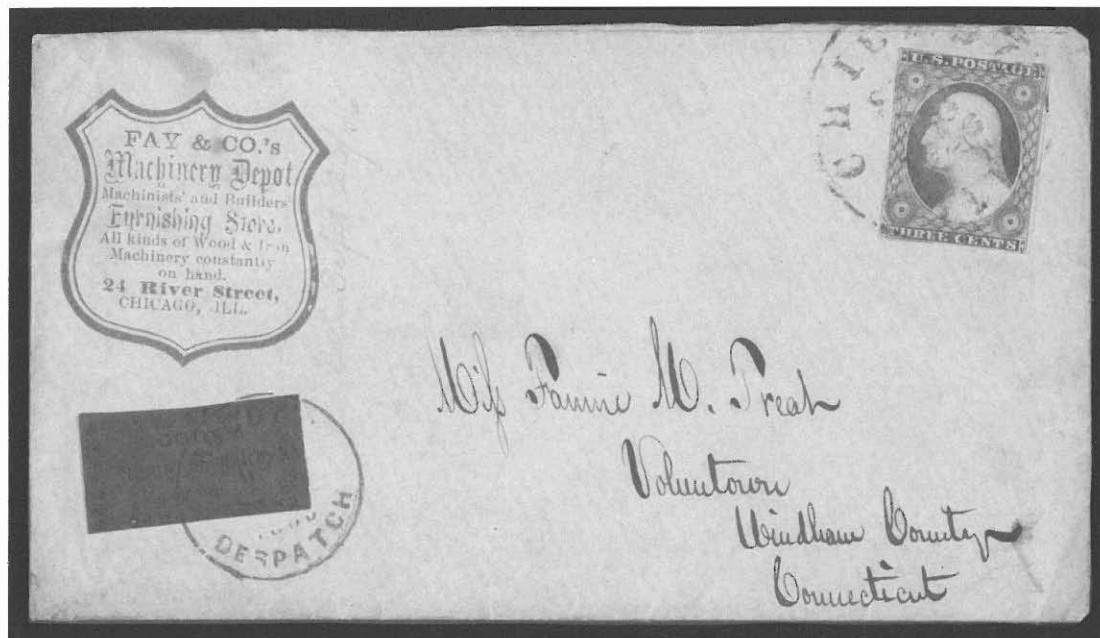 FAY & CO.'s
Machinery Depot
Machinists' and Builders
Furnishing Store.
All kinds of Wood & Iron
Machinery constantly
on hand.
24 River Street,
CHICAGO, ILL.
U.S. POSTAGE
THREE CENTS
Miss Fannie M. Treat
Voluntown
Windham County
Connecticut
DESPATCH